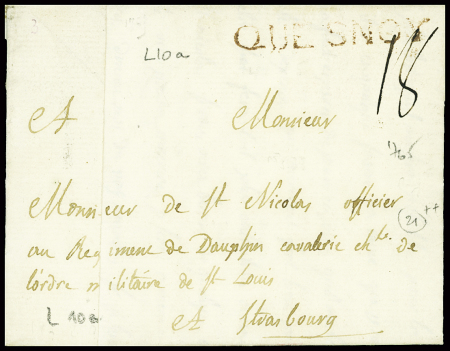 QUESNOY
L10a
18
A Monsieur
765
Monsieur de St Nicolas officier
21 ++
au Regiment de Dauphin cavalerie chlr de
l'ordre militaire de St Louis
L 10a
A Strasbourg